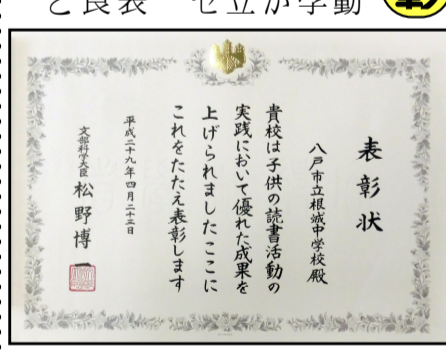 と良表 セ立が学動
表彰状
八戸市立根城中学校殿
貴校は子供の読書活動の
実践において優れた成果を
上げられましたここに
これをたたえ表彰します
平成二十九年四月二十三日
文部科学大臣 松野博一